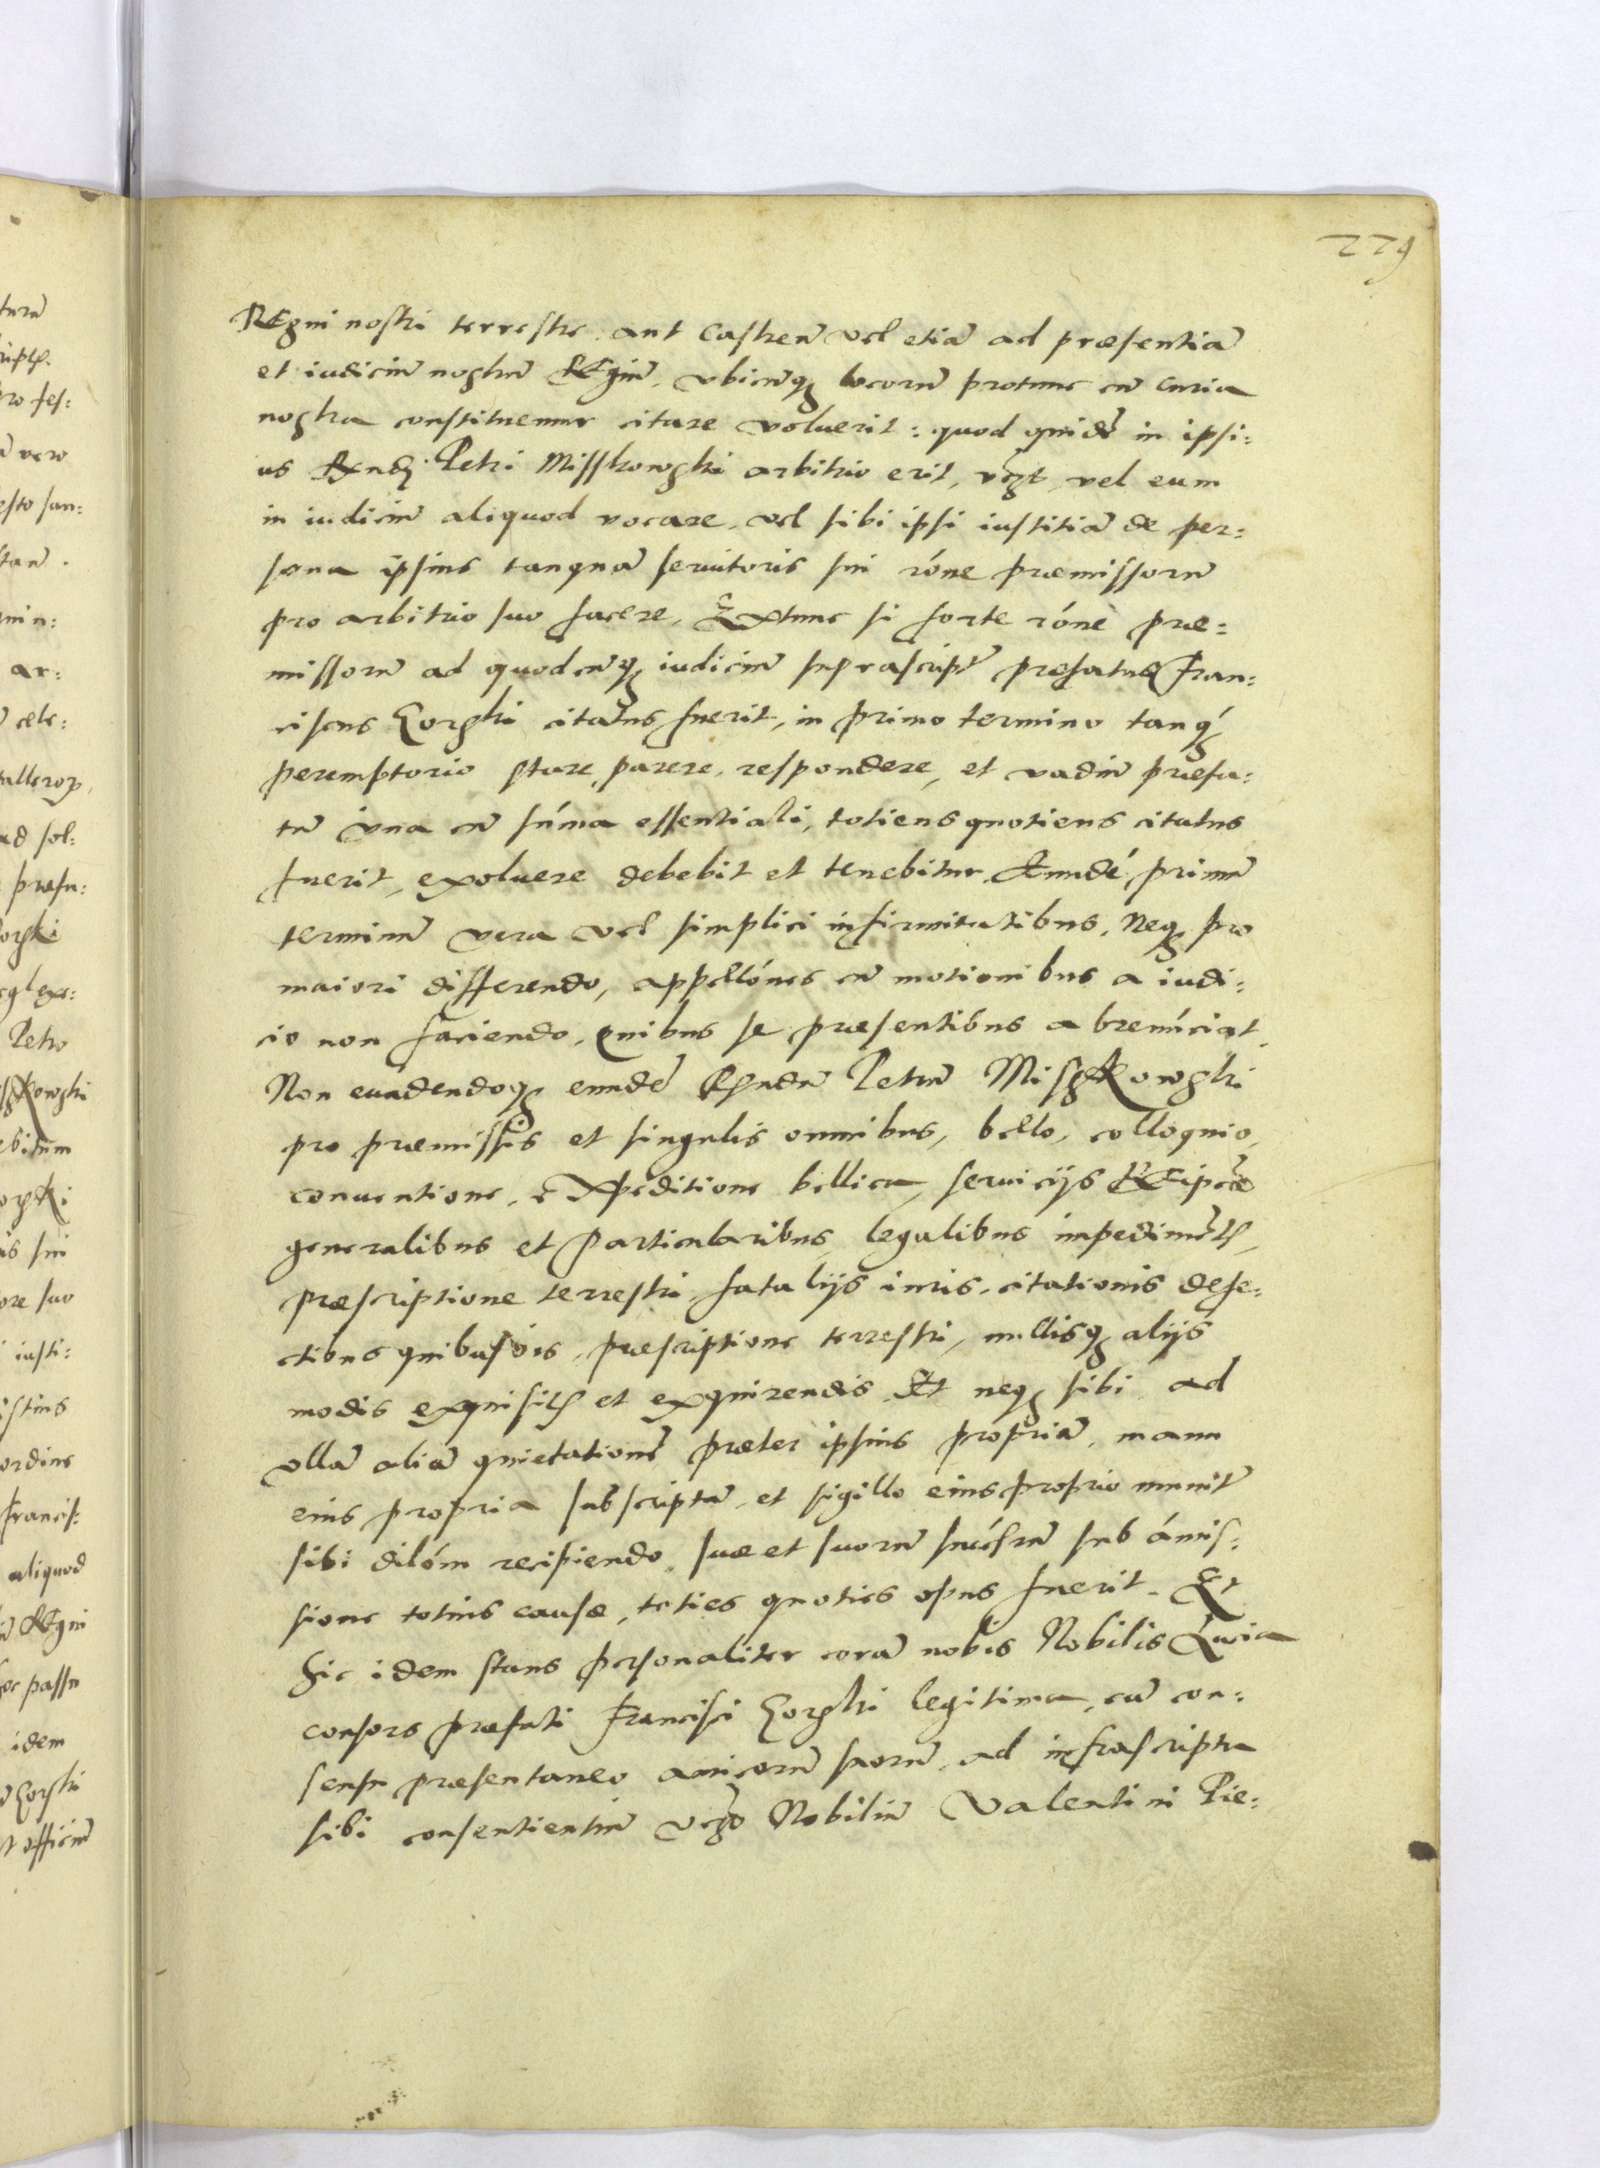 229
Regni nostri terrestre aut castren̄ vel etiā ad præsentiā
et iudiciū nostrū Regiū, vbicunq; locorū protunc cū curia
nostra constituemur citare voluerit: quod quidē in ipsi:
us Rndi Petri Misskowski arbitrio erit, vel eum
in iudiciū aliquod vocare, vel sibi ipsi iustitiā de per:
sona ipsius tanquā seruitoris sui róne præmissorū
pro arbitrio suo facere, Extunc si forte róne præ:
missorū ad quodcunq; iudiciū suprascript̄ præfatus Fran:
ciscus Gorski citatus fuerit, in primo termino tanq́
peremptorio stare, parere, respondere, et vadiū præfa:
tū vna cū súma essentiali, totiens quotiens citatus
fuerit, exoluere debebit et tenebitur. Eundé primū
terminū vera vel simplici infirmitatibus, Neq; pro
maiori differendo, appellónes cū motionibus a iudi:
cio non faciendo, quibus se præsentibus abrenúciat.
Non euadendoq; eundē Rndū Petrū Miskowski
pro præmissis et singulis omnibus, bello, colloquio,
conuentione, expeditione bellica, seruicijs Reipcæ
generalibus et particularibus, legalibus impedimētis,
præscriptione terrestri, fatalijs iuris, citationis defe:
ctibus quibusuis, præscriptione terrestri, nullisq; alijs
modis exquisitis et exquirendis. Et neq; sibi ad
vllā aliā quietationē præter ipsius propriā, manu
eius propria subscriptā, et sigillo eius proprio munit̄
sibi dilóm recipiendo, suæ et suorū sucúsrū sub ámis:
sione totius causæ, toties quoties opus fuerit. Et
hic idem stans personaliter corā nobis Nobilis Lucia
consors præfati Francisci Gorski legitima, cū con:
sensu præsentaneo amicorū suorū, ad infrascripta
sibi consentientiū Nobiliū Valentini Pie: